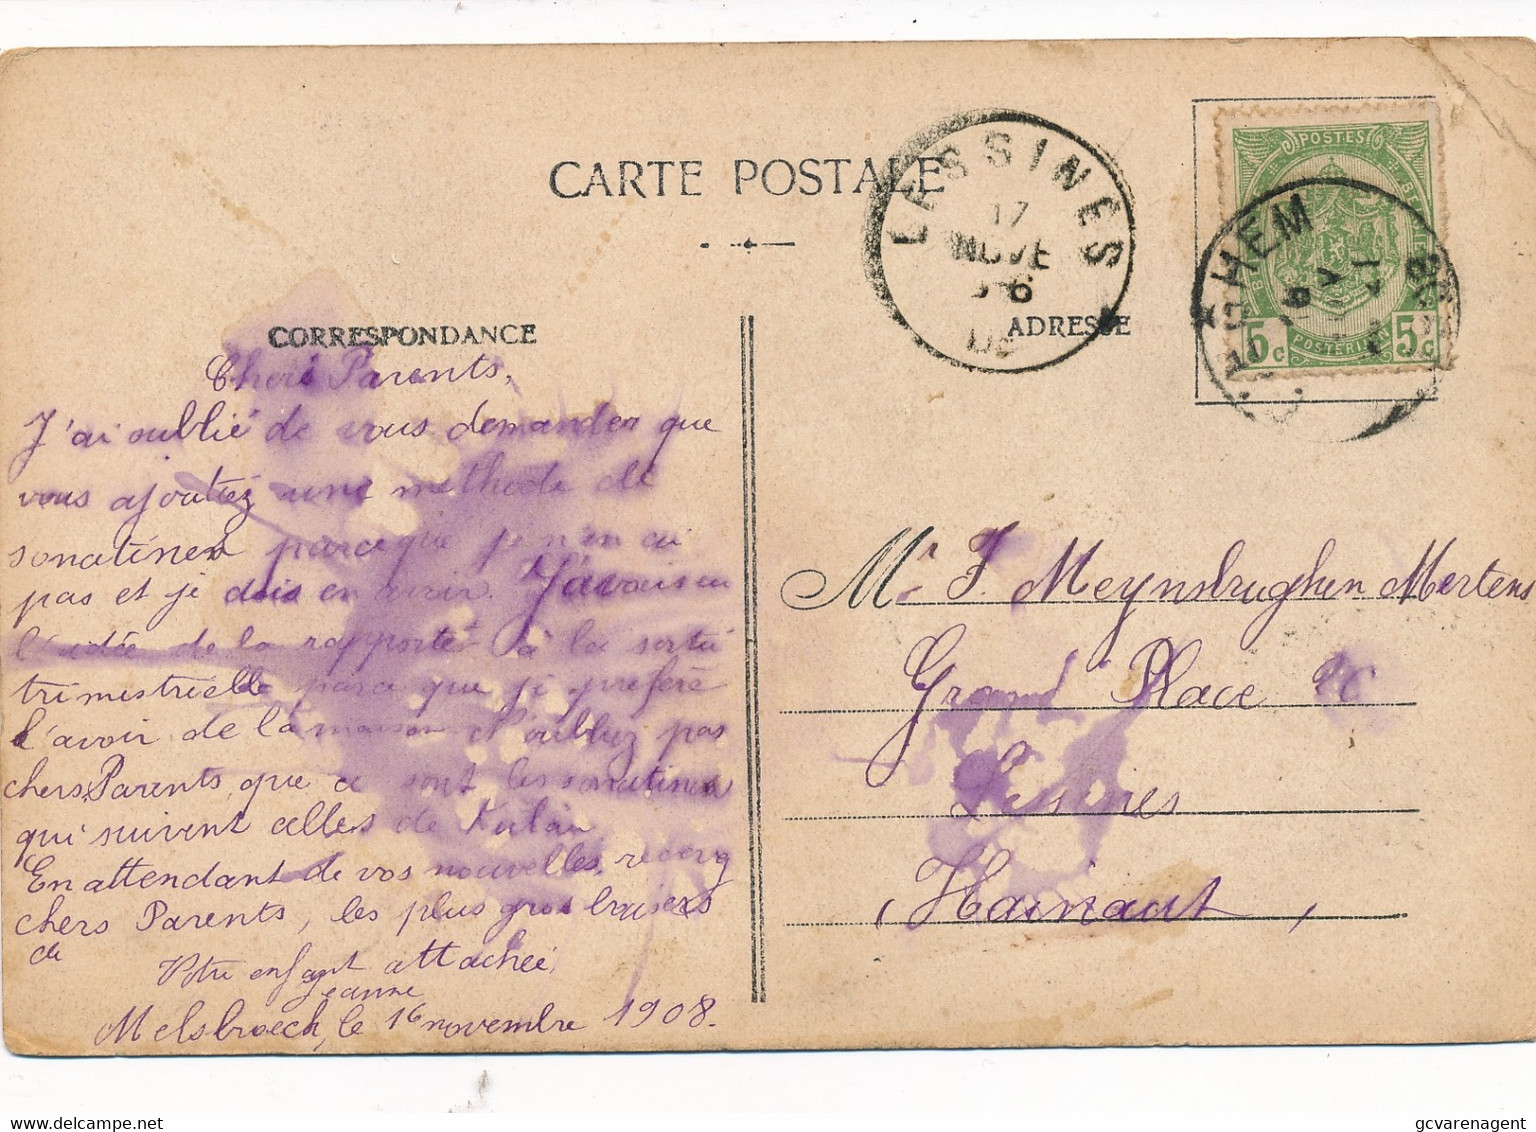 CARTE POSTALE
CORRESPONDANCE
ADRESSE
LESSINES
17
NOVE
6
POSTES
5c
5c
POSTERIJEN
Cheri Parents,
J'ai oublié de vous demander que
vous ajoutiez une méthode de
sonatines parceque je n'en ai
pas et je dois en avoir. J'avais eu
l'idée de la rapporter à la sortie
trimestrielle parce que je préfère
l'avoir de la maison N'oubliez pas
chers Parents, que ce sont les sonatines
qui suivent celles de
En attendant de vos nouvelles, recevez
chers Parents, les plus gros baisers
de
Votre enfant attachée,
Jeanne
Melsbroeck, le 16 novembre 1908.
Mr J. Meynsbrughen Mertens
Grand Place
Lessines
(Hainaut)
delcampe.net
gcvarenagent